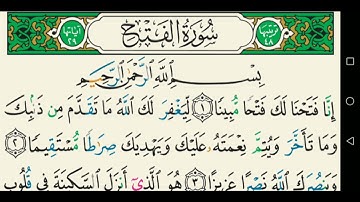 ترتيبها ٤٨ سُورَةُ الْفَتْحِ آياتها ٢٩
بِسْمِ اللَّهِ الرَّحْمَٰنِ الرَّحِيمِ
إِنَّا فَتَحْنَا لَكَ فَتْحًا مُّبِينًا ١ لِّيَغْفِرَ لَكَ اللَّهُ مَا تَقَدَّمَ مِن ذَنۢبِكَ
وَمَا تَأَخَّرَ وَيُتِمَّ نِعْمَتَهُۥ عَلَيْكَ وَيَهْدِيَكَ صِرَٰطًا مُّسْتَقِيمًا ٢
وَيَنصُرَكَ اللَّهُ نَصْرًا عَزِيزًا ٣ هُوَ الَّذِىٓ أَنزَلَ السَّكِينَةَ فِى قُلُوبِ